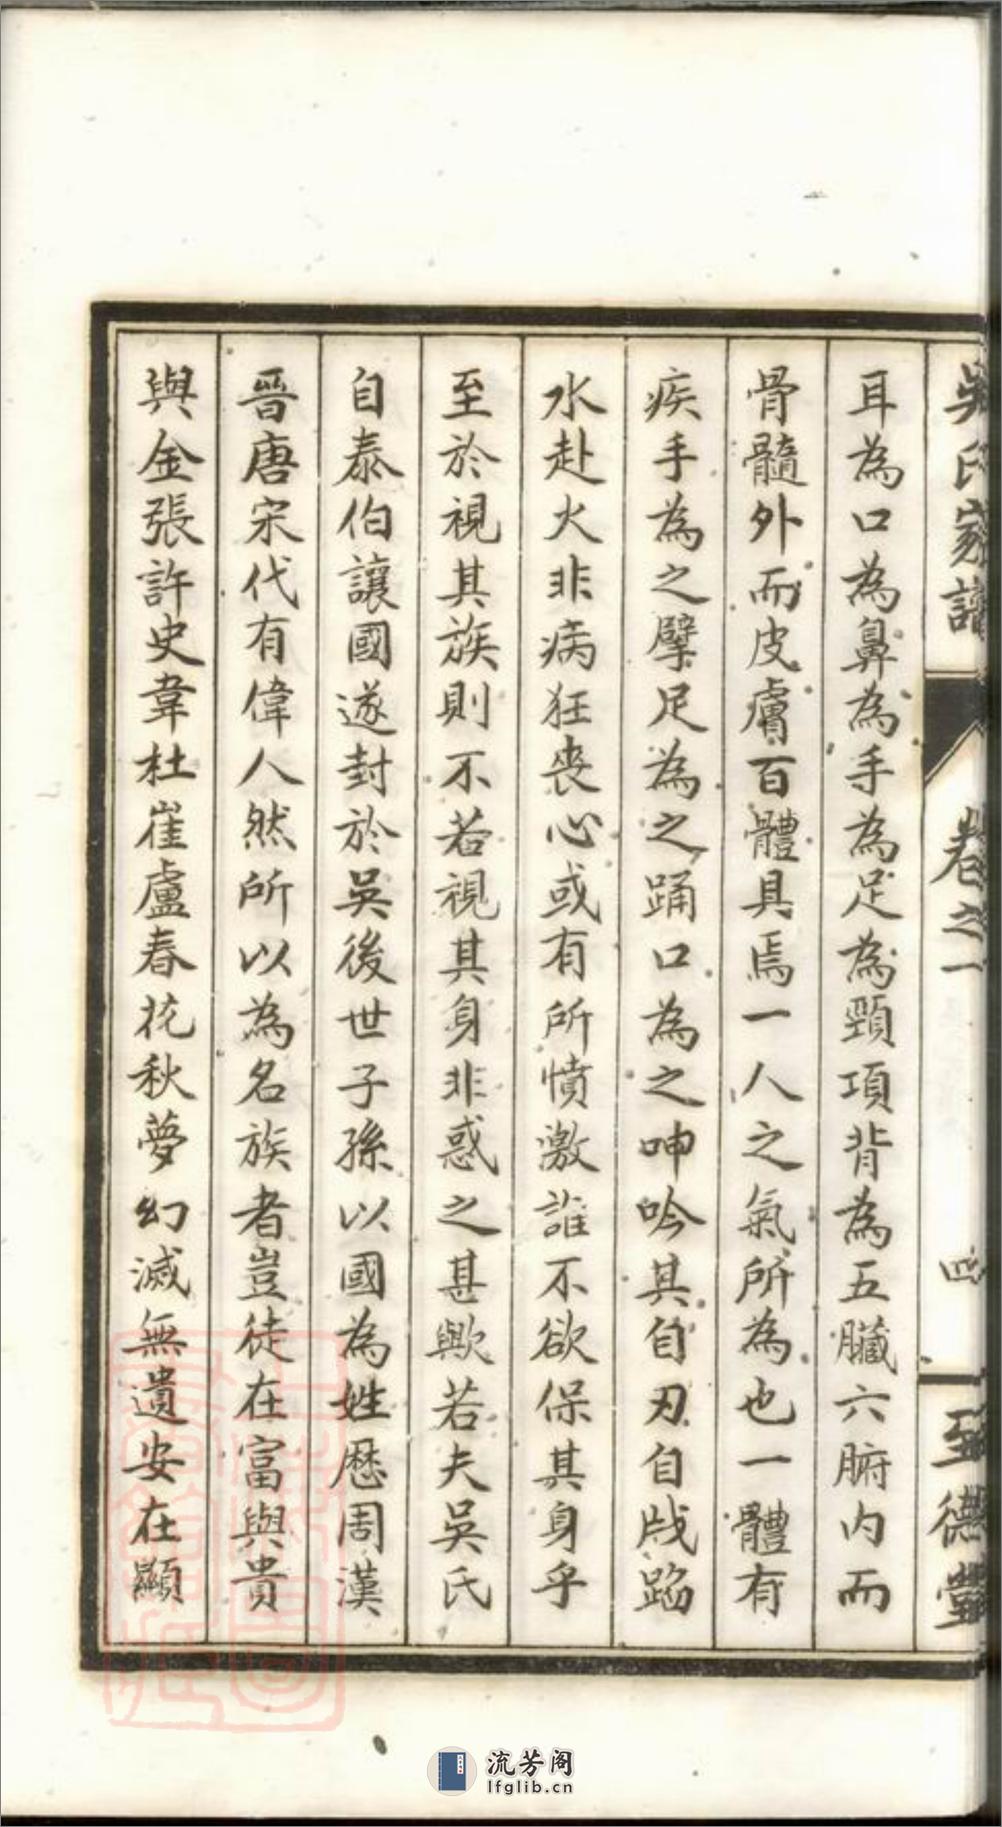 吳氏家譜 卷之一 四 至德堂
耳為口為鼻為手為足為頸項背為五臟六腑內而
骨髓外而皮膚百體具焉一人之氣所為也一體有
疾手為之擘足為之踊口為之呻吟其自刃自戕蹈
水赴火非病狂喪心或有所憤激誰不欲保其身乎
至於視其族則不若視其身非惑之甚歟若夫吳氏
自泰伯讓國遂封於吳後世子孫以國為姓歷周漢
晉唐宋代有偉人然所以為名族者豈徒在富與貴
與金張許史韋杜崔盧春花秋夢幻滅無遺安在顯
流芳阁
lfglib.cn